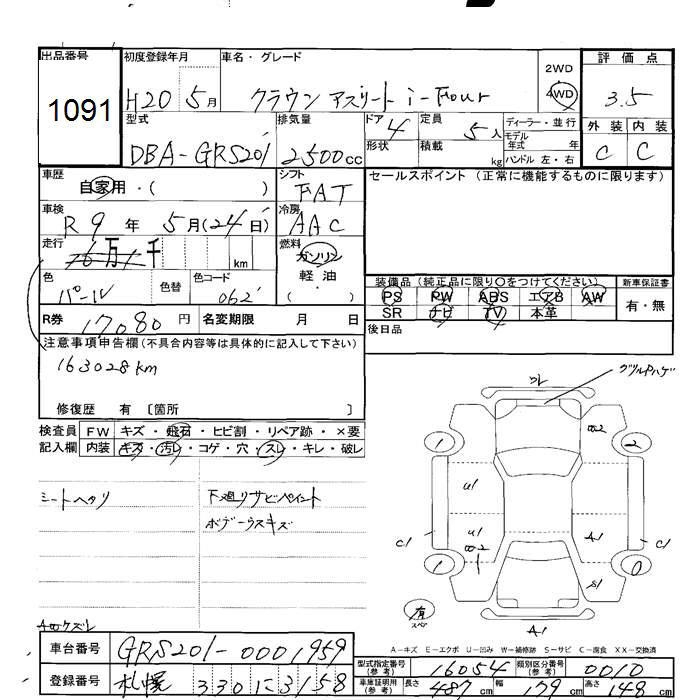 出品番号 初度登録年月 車名・グレード 2WD 評価点
1091 H20 5月 クラウン アスリート i-Four 4WD 3.5
型式 排気量 ドア 4 定員 5人 ディーラー・並行 外装 内装
DBA-GRS201 2500cc 形状 積載 kg モデル年式 年 ハンドル 左・右 C C
車歴 シフト セールスポイント(正常に機能するものに限ります)
自家用・( ) FAT
車検 冷房
R9年 5月(24日) AAC
走行 燃料
16万 千 km ガソリン
軽油
( )
色 色替 色コード
パール 062
装備品(純正品に限り○をつけてください) 新車保証書
PS PW ABS エアB AW 有・無
SR ナビ TV 本革
R券 17080円 名変期限 月 日
後日品
注意事項申告欄(不具合内容等は具体的に記入して下さい)
163028km
修復歴 有 〔箇所 〕
検査員 FW キズ・飛石・ヒビ割・リペア跡・×要
記入欄 内装 キズ・汚レ・コゲ・穴・スレ・キレ・破レ
シートヘタリ 下廻リサビペイント
ボデーウスキズ
グリルPハゲ
ワレ
1 2
U1
U1 A1
C1 C1
1 S1 0
有
スペア
A1
AWクズレ
A-キズ E-エクボ U-凹み W-補修跡 S-サビ C-腐食 XX-交換済
車台番号 GRS201-0001959
型式指定番号(参考) 16054 類別区分番号(参考) 0010
登録番号 札幌 330に3158
車庫証明用(参考) 長さ 487cm 幅 179cm 高さ 148cm